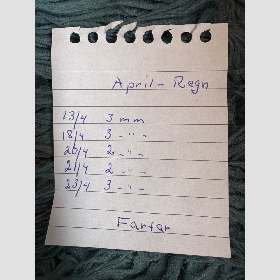 April - Regn
13/4 3 mm
18/4 3 -"-
20/4 2 -"-
21/4 2 -"-
23/4 3 -"-
Farfar